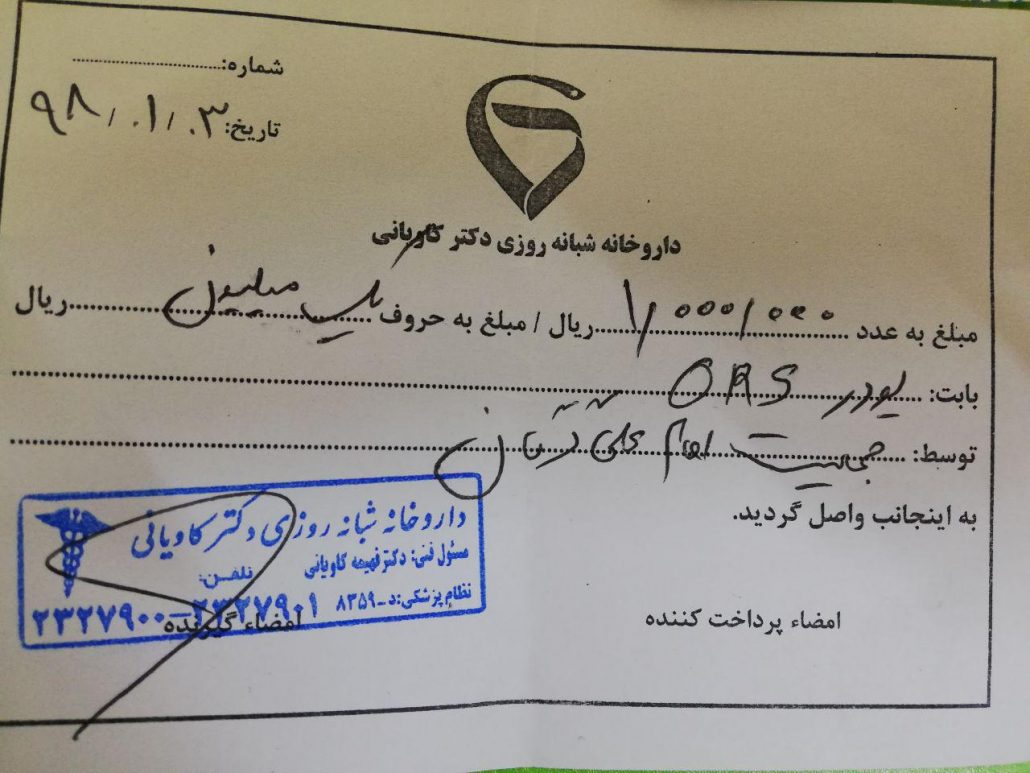 شماره:
تاریخ: ۹۸/۰۱/۰۳
داروخانه شبانه روزی دکتر کاویانی
مبلغ به عدد ۱/۰۰۰/۰۰۰ ریال / مبلغ به حروف یک میلیون ریال
بابت: پودر ORS
توسط: جمعیت امام علی
به اینجانب واصل گردید.
امضاء پرداخت کننده
امضاء گیرنده
داروخانه شبانه روزی دکتر کاویانی
مسئول فنی: دکتر فهیمه کاویانی
نظام پزشکی: د-۸۳۵۹ تلفن:
۲۳۲۷۹۰۰-۲۳۲۷۹۰۱